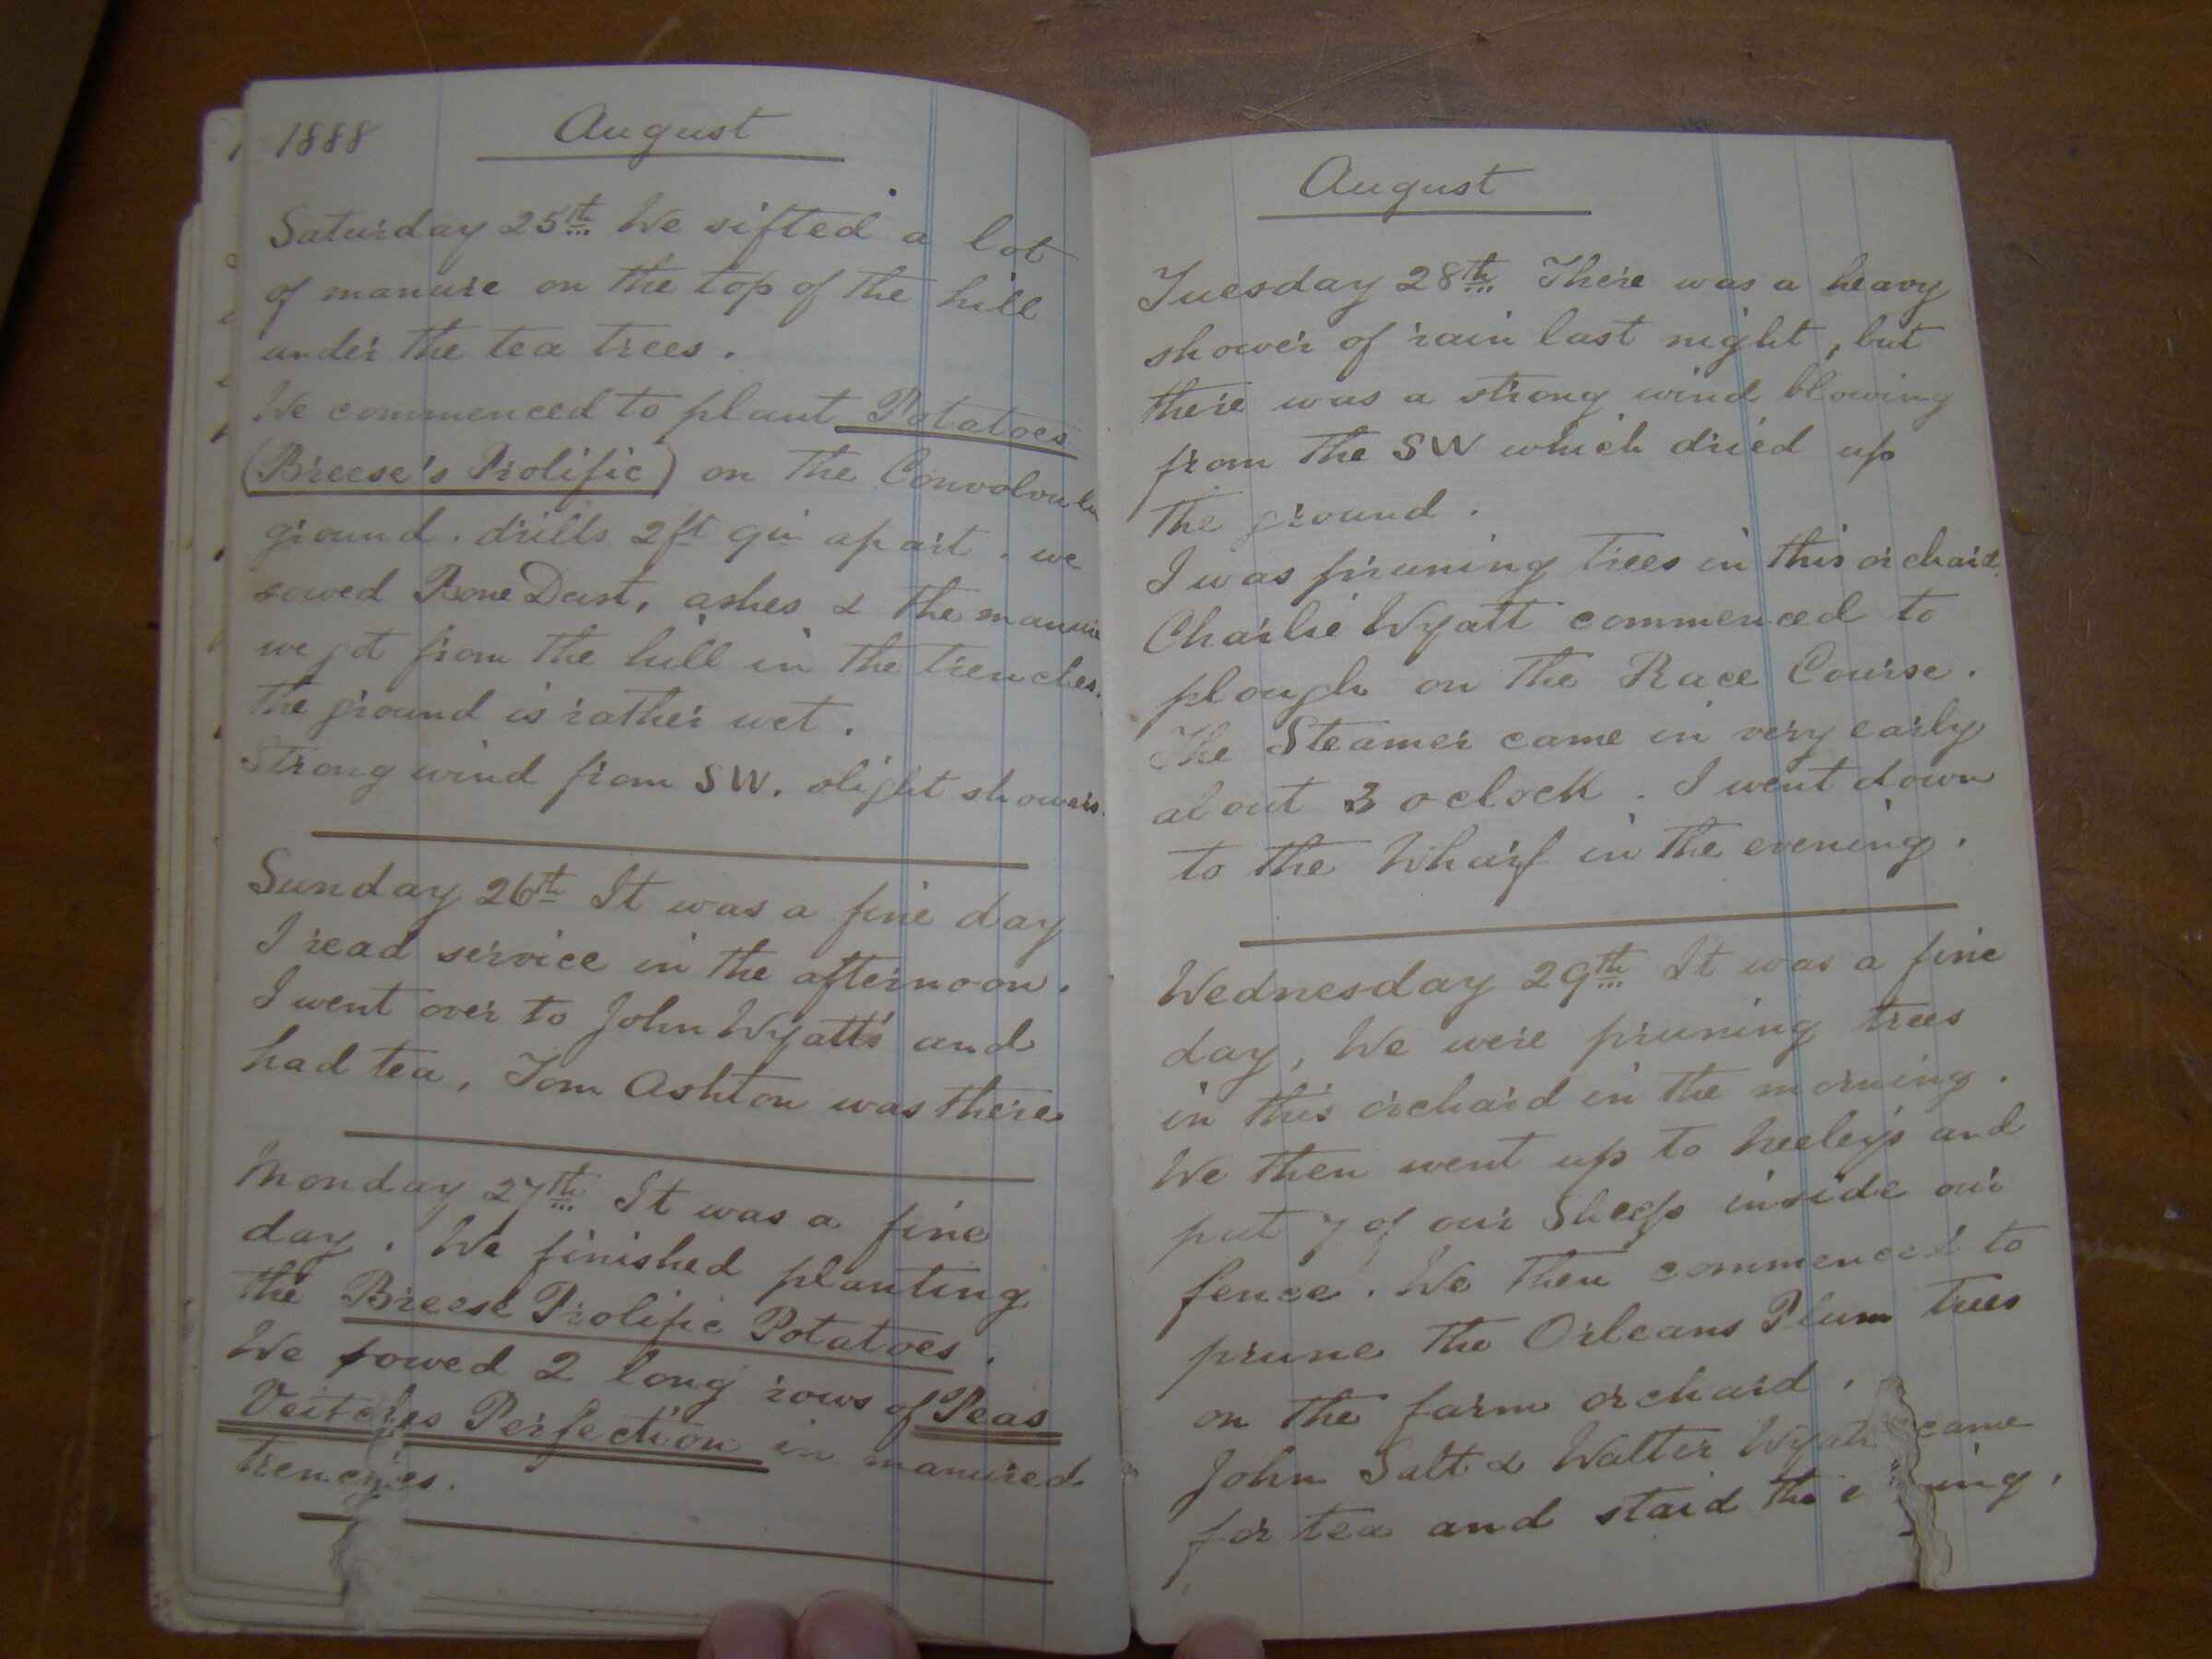 1888 August
Saturday 25th We sifted a lot
of manure on the top of the hill
under the tea trees.
We commenced to plant Potatoes
(Breese's Prolific) on the
ground. drills 2ft 9in apart. we
sowed Bone Dust, ashes & the manure
we got from the hill in the trenches.
the ground is rather wet.
Strong wind from SW. slight showers.
Sunday 26th It was a fine day
I read service in the afternoon.
I went over to John Wyatt's and
had tea, Tom Ashton was there
Monday 27th It was a fine
day. We finished planting
the Breese Prolific Potatoes.
We sowed 2 long rows of Peas
Veitches Perfection in manured
trenches.
August
Tuesday 28th There was a heavy
shower of rain last night, but
there was a strong wind blowing
from the SW which dried up
the ground.
I was pruning trees in this orchard.
Charlie Wyatt commenced to
plough on the Race Course.
The Steamer came in very early
about 3 oclock. I went down
to the Wharf in the evening.
Wednesday 29th It was a fine
day, We were pruning trees
in this orchard in the morning.
We then went up to and
put 7 of our Sheep inside our
fence. We then commenced to
prune the Orleans Plum trees
on the farm orchard.
John Salt & Walter Wyatt came
for tea and staid the